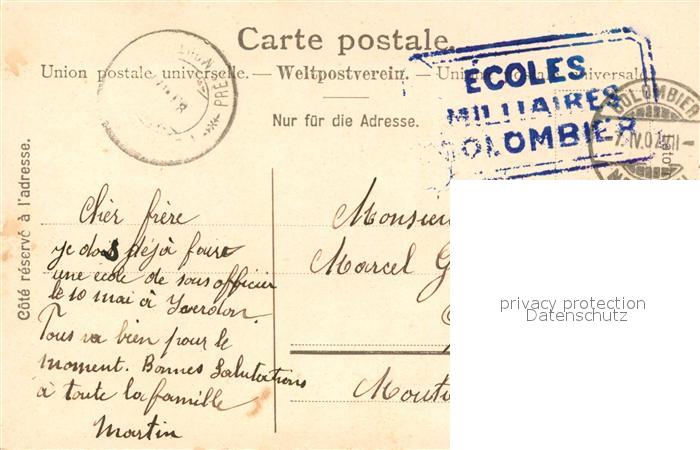 Carte postale.
Union postale universelle. — Weltpostverein. — Union postale universale
Nur für die Adresse.
Côté réservé à l'adresse.
ÉCOLES
MILITAIRES
COLOMBIER
COLOMBIER
7.IV.07.VII-
PRE
Cher frère
je dois déjà faire
une école de sous officier
le 10 mai à Yverdon.
Tous va bien pour le
moment. Bonnes Salutations
à toute la famille
Martin
Monsieu
Marcel G
Mouti
privacy protection
Datenschutz